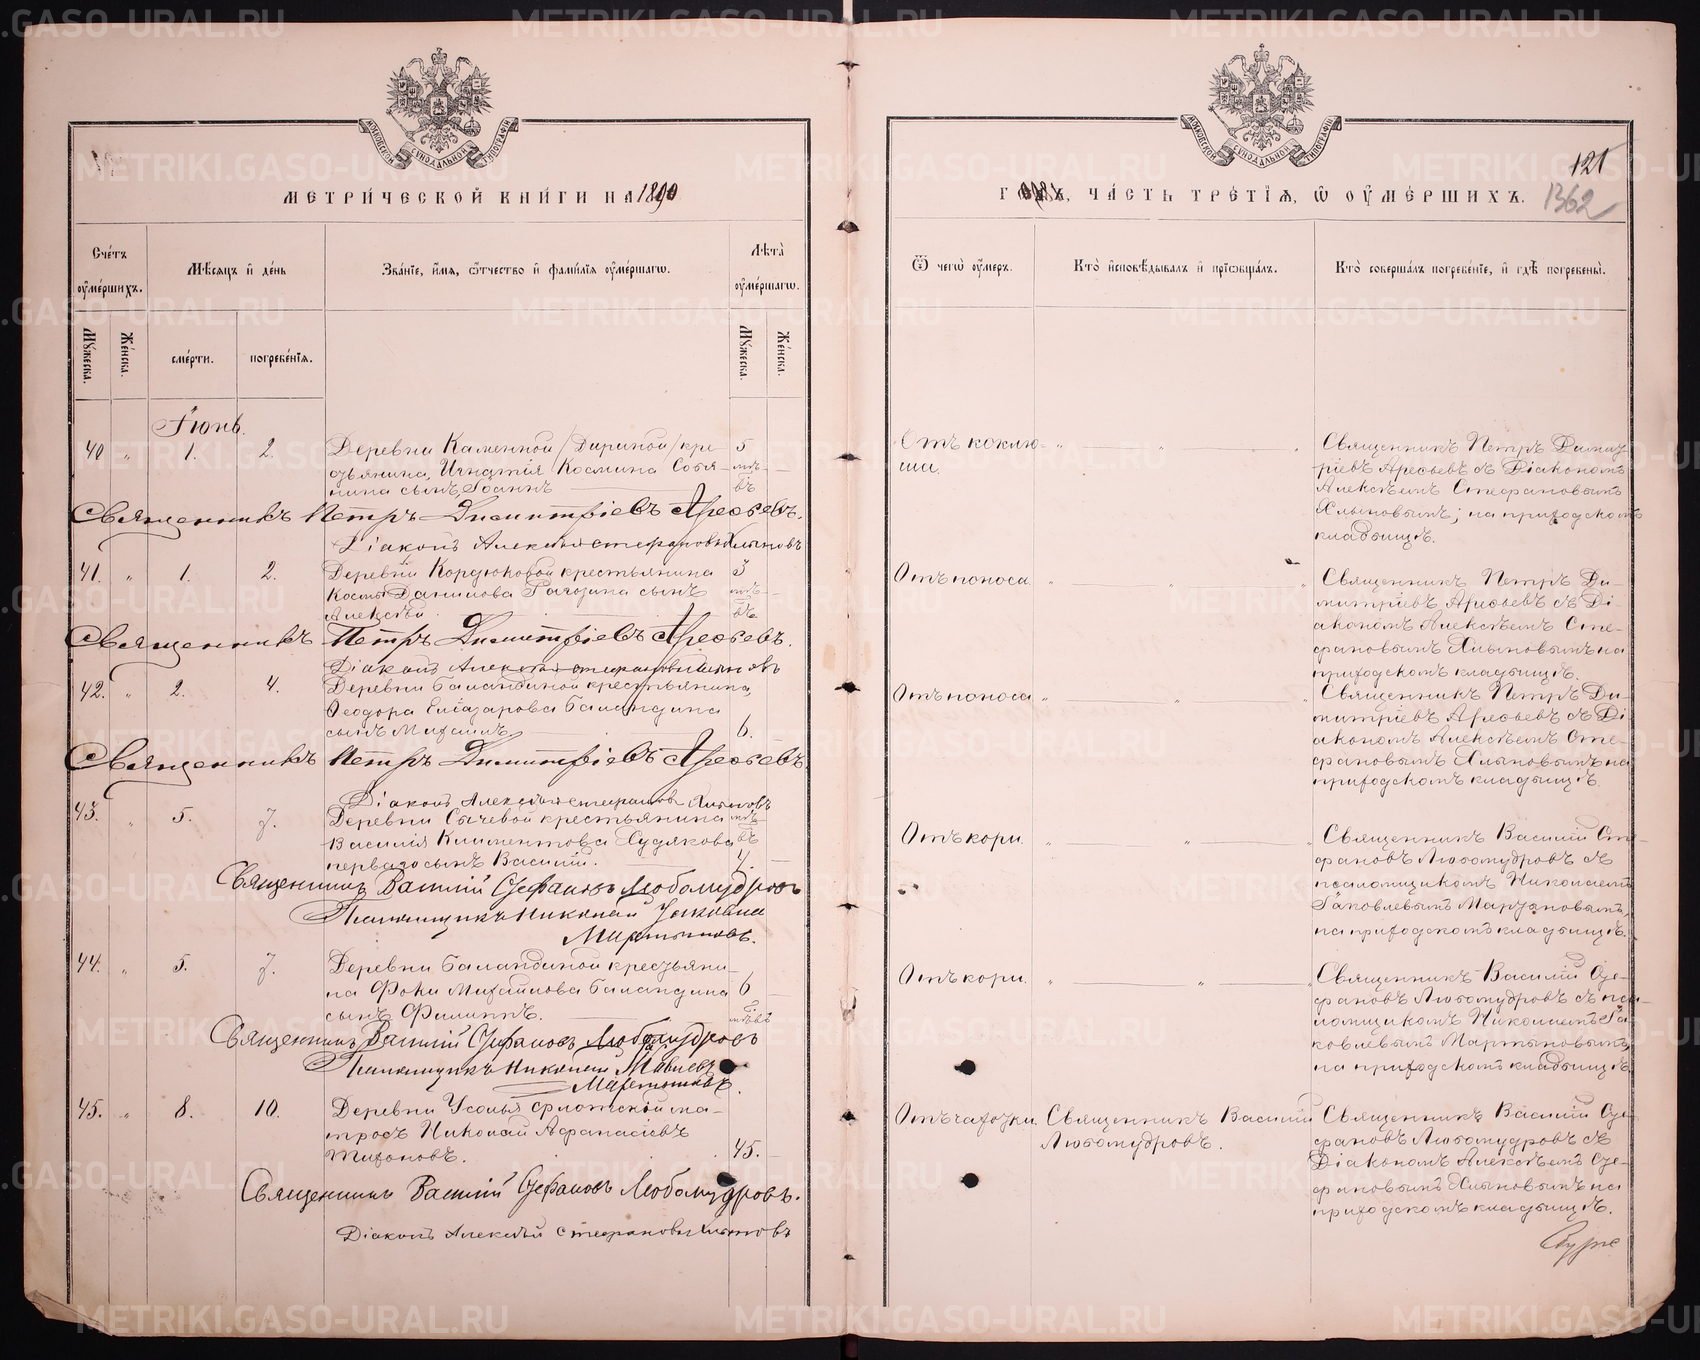 МОСКОВСКОЙ СѴНОДАЛЬНОЙ ТИПОГРАФІИ
МЕТРИ́ЧЕСКОЙ КНИ́ГИ НА 1890
Сче́тъ ᲂу҆ме́ршихъ.
Мѣ́сяцъ и҆ де́нь
Зва́нїе, и҆́мѧ, ѻ҆́тчество и҆ фами́лїѧ ᲂу҆ме́ршагѡ.
Лѣ́та ᲂу҆ме́ршагѡ.
Мꙋ́жеска.
Же́нска.
сме́рти.
погребе́нїѧ.
Мꙋ́жеска.
Же́нска.
Іюнь.
40 " 1. 2. Деревни Каменной /Дириной/ кре
стьянина, Игнатія Космина Собя-
нина сынъ, Іоаннъ
5 мѣ- въ
Священникъ Петръ Димитріевъ Аресьевъ.
Діаконъ Алексѣй Стефановъ Хлыновъ
41. " 1. 2. Деревни Кордюковой крестьянина
Космы Данилова сынъ
Алексѣй
3 мѣ- въ
Священникъ Петръ Димитріевъ Аресьевъ.
Діаконъ Алексѣй Стефановъ Хлыновъ
42. " 2. 4. Деревни Баландиной крестьянина
Ѳеодора Елеазарова Баландина
сынъ Михаилъ 6.
Священникъ Петръ Димитріевъ Аресьевъ.
Діаконъ Алексѣй Стефановъ Хлыновъ
43. " 5. 7. Деревни Сычевой крестьянина мѣ-
Василія Климентова Худякова въ
перваго сынъ Василій. 4.
Священникъ Василій Стефановъ Любомудровъ
Псаломщикъ Николай Яковлевъ
Мартыновъ.
44. " 5. 7. Деревни Баландиной крестьяни-
на Фоки Михайлова Баландина 6
сынъ Филиппъ. мѣ-въ
Священникъ Василій Стефановъ Любомудровъ
Псаломщикъ Николай Яковлевъ
Мартыновъ.
45. " 8. 10. Деревни Усолья флотскій ма-
тросъ Николай Афанасіевъ
Тихоновъ. 45.
Священникъ Василій Стефановъ Любомудровъ.
Діаконъ Алексѣй Стефановъ Хлыновъ
МОСКОВСКОЙ СѴНОДАЛЬНОЙ ТИПОГРАФІИ
121
1362
ГО́ДЪ, ЧА́СТЬ ТРЕ́ТЇѦ, Ѡ҆ ᲂУ҆МЕ́РШИХЪ.
Ѿ чегѡ̀ ᲂу҆́меръ.
Кто̀ и҆сповѣ́дывалъ и҆ прїѡбща́лъ.
Кто̀ соверша́лъ погребе́нїе, и҆ гдѣ̀ погребены̀.
Отъ коклю-
ша.
Священникъ Петръ Димит
ріевъ Аресьевъ съ Діакономъ
Алексѣемъ Стефановымъ
Хлыновымъ; на приходскомъ
кладбищѣ.
Отъ поноса
Священникъ Петръ Ди-
митріевъ Аресьевъ съ Ді-
акономъ Алексѣемъ Сте-
фановымъ Хлыновымъ на
приходскомъ кладбищѣ.
Отъ поноса
Священникъ Петръ Ди-
митріевъ Аресьевъ съ Ді
акономъ Алексѣемъ Сте-
фановымъ Хлыновымъ на
приходскомъ кладбищѣ.
Отъ кори.
Священникъ Василій Сте
фановъ Любомудровъ съ
псаломщикомъ Николаемъ
Іаковлевымъ Мартыновымъ,
на приходскомъ кладбищѣ.
Отъ кори.
Священникъ Василій Сте-
фановъ Любомудровъ съ пса-
ломщикомъ Николаемъ Іа
ковлевымъ Мартыновымъ,
на приходскомъ кладбищѣ.
Отъ чахотки
Священникъ Василій
Любомудровъ.
Священникъ Василій Сте
фановъ Любомудровъ съ
Діакономъ Алексѣемъ Сте-
фановымъ Хлыновымъ на
приходскомъ кладбищѣ.
METRIKI.GASO-URAL.RU